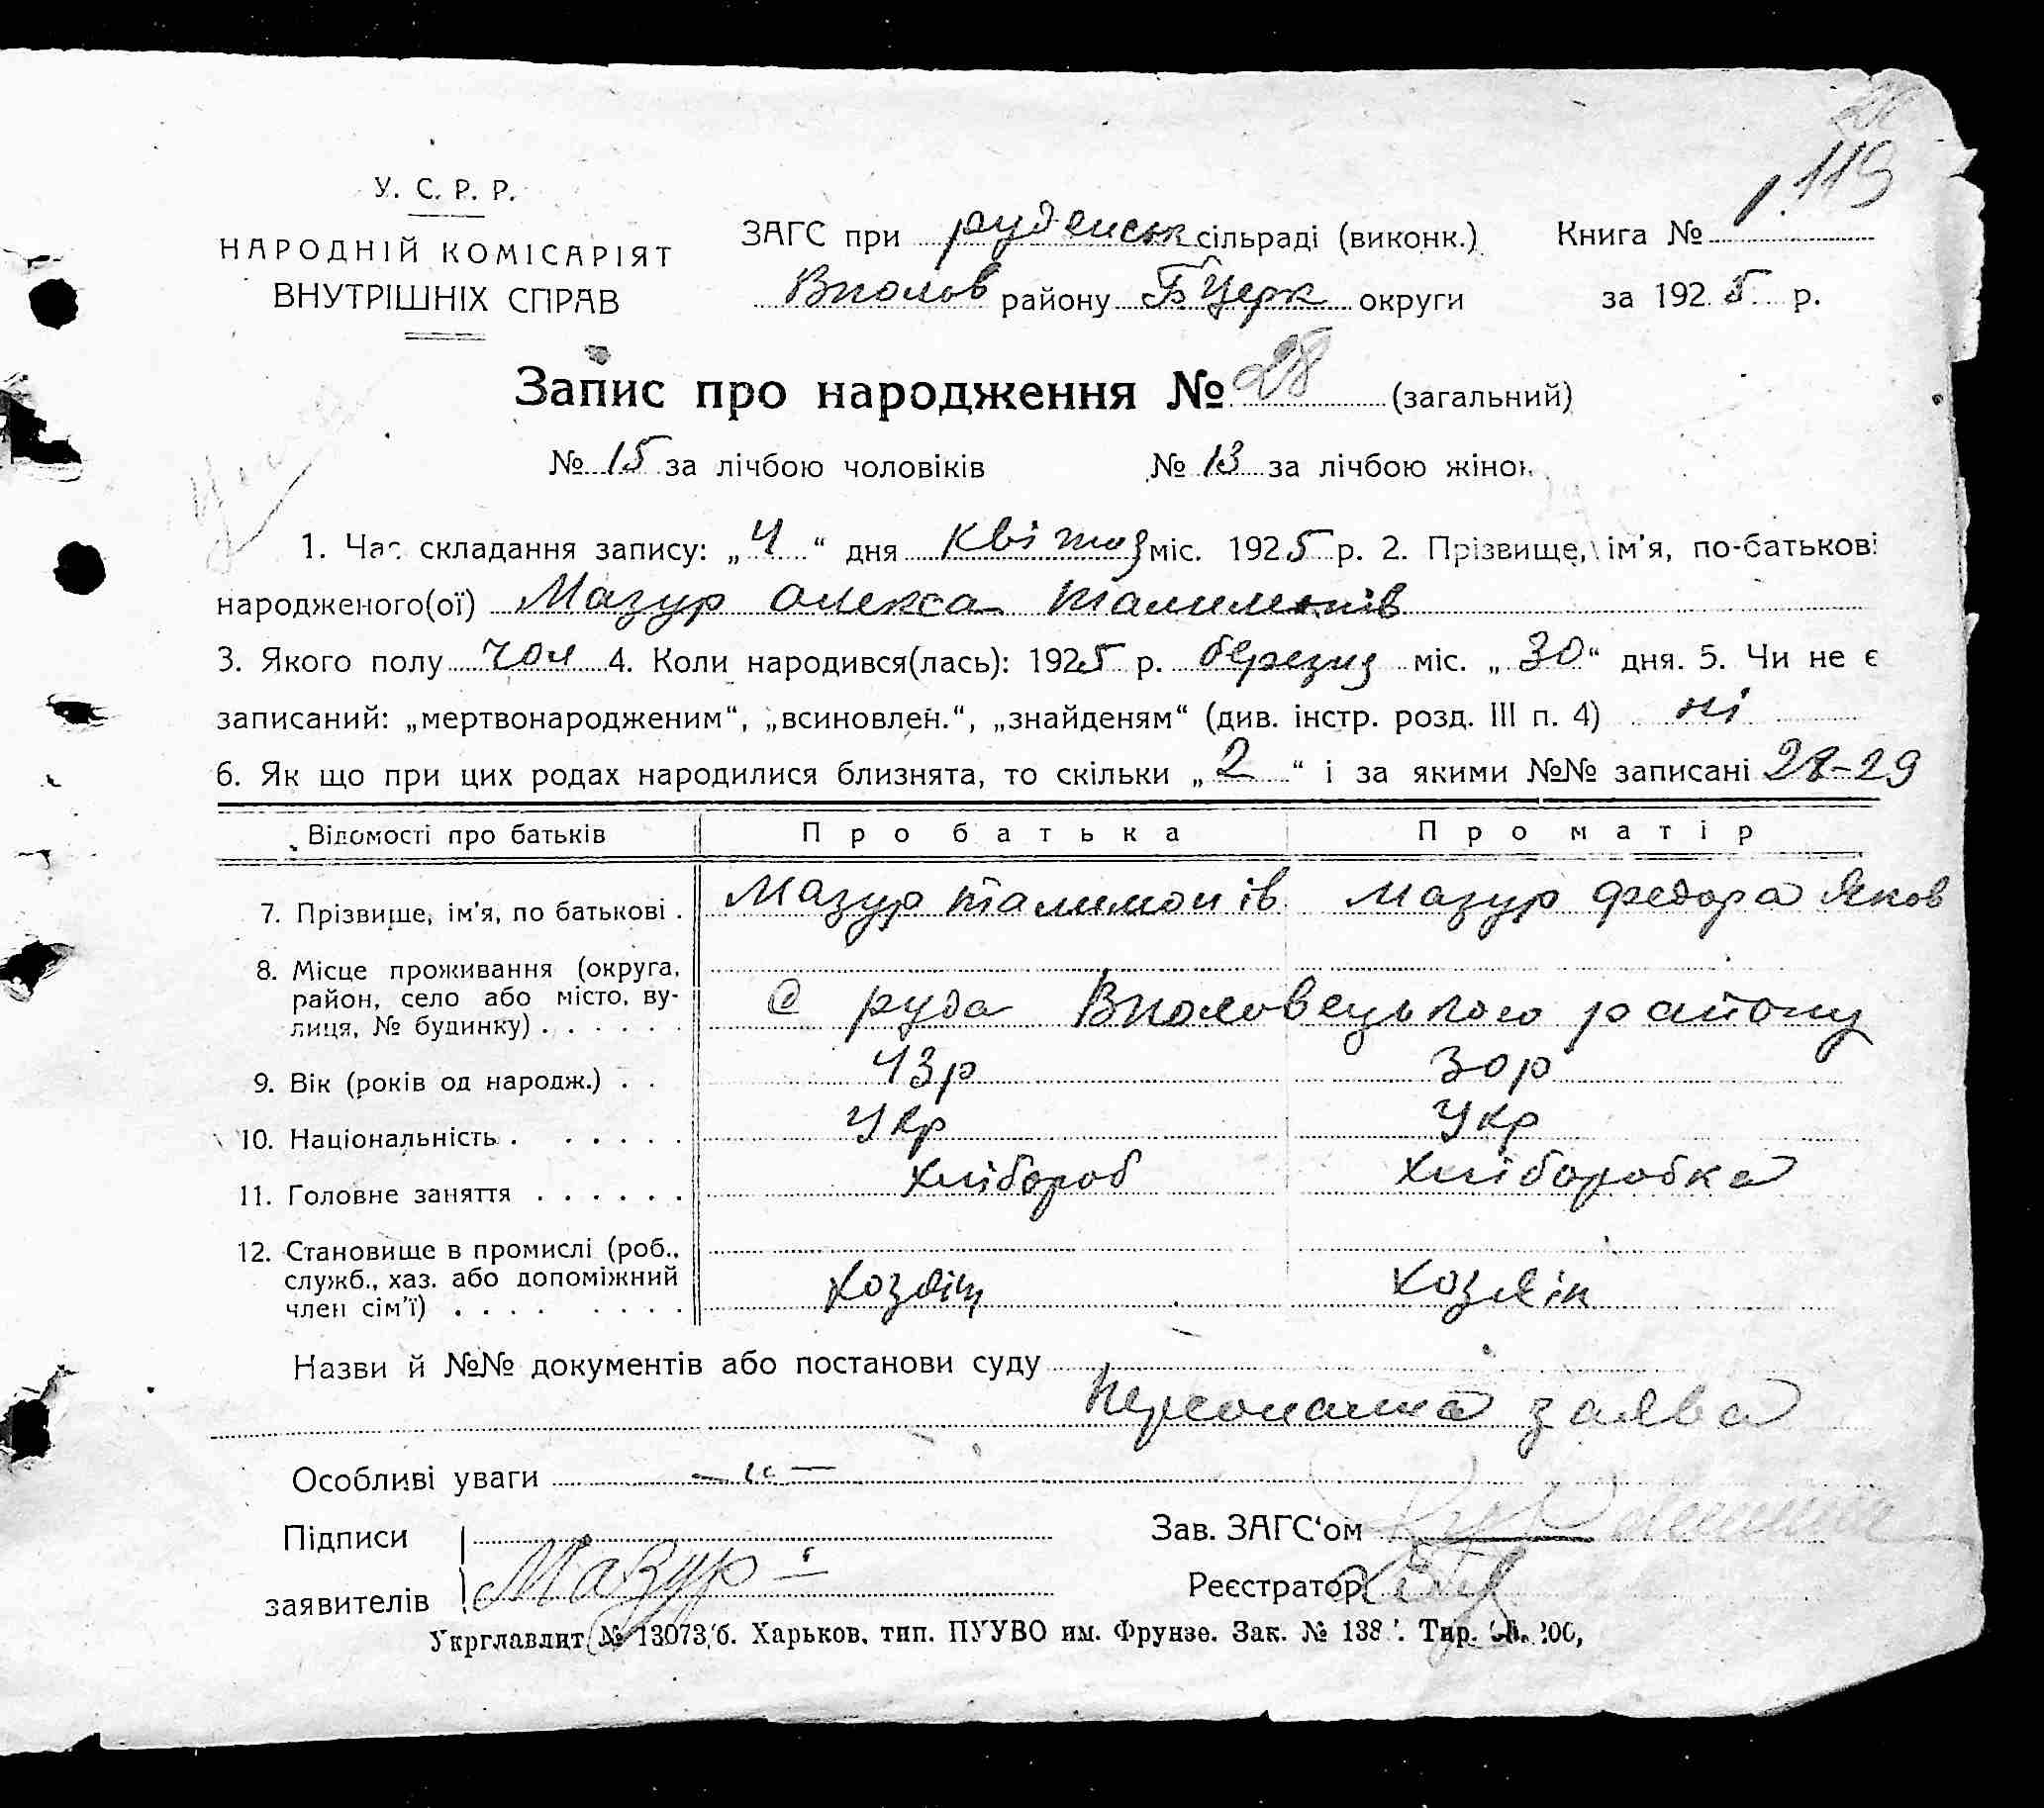 119
У. С. Р. Р.
НАРОДНІЙ КОМІСАРІЯТ
ВНУТРІШНІХ СПРАВ
ЗАГС при руденськ сільраді (виконк.)
Вполов району Б Церк округи
Книга № 1
за 1925 р.
Запис про народження № 28 (загальний)
№ 15 за лічбою чоловіків № 13 за лічбою жінок
1. Час складання запису: „4“ дня квітня міс. 1925 р. 2. Прізвище, ім'я, по-батькові
народженого(ої) Мазур Олекса
3. Якого полу чол 4. Коли народився(лась): 1925 р. березня міс. „30“ дня. 5. Чи не є
записаний: „мертвонародженим“, „всиновлен.“, „знайденям“ (див. інстр. розд. III п. 4) ні
6. Як що при цих родах народилися близнята, то скільки „2“ і за якими №№ записані 28-29
Відомості про батьків Про батька Про матір
7. Прізвище, ім'я, по батькові . Мазур талимонів Мазур Федора Яков
8. Місце проживання (округа,
район, село або місто, ву-
лиця, № будинку) . . . . . . С руда Вполовецького району
9. Вік (років од народж.) . . 43р 30р
10. Національність . . . . . . Укр Укр
11. Головне заняття . . . . . . Хлібороб Хліборобка
12. Становище в промислі (роб.,
служб., хаз. або допоміжний
член сім'ї) . . . . . . . .
Назви й №№ документів або постанови суду
Персональна заява
Особливі уваги — „ —
Підписи
заявителів Мазур
Зав. ЗАГС'ом
Реєстратор
Укрглавлит № 13073/б. Харьков, тип. ПУУВО им. Фрунзе. Зак. № 138 Тир.